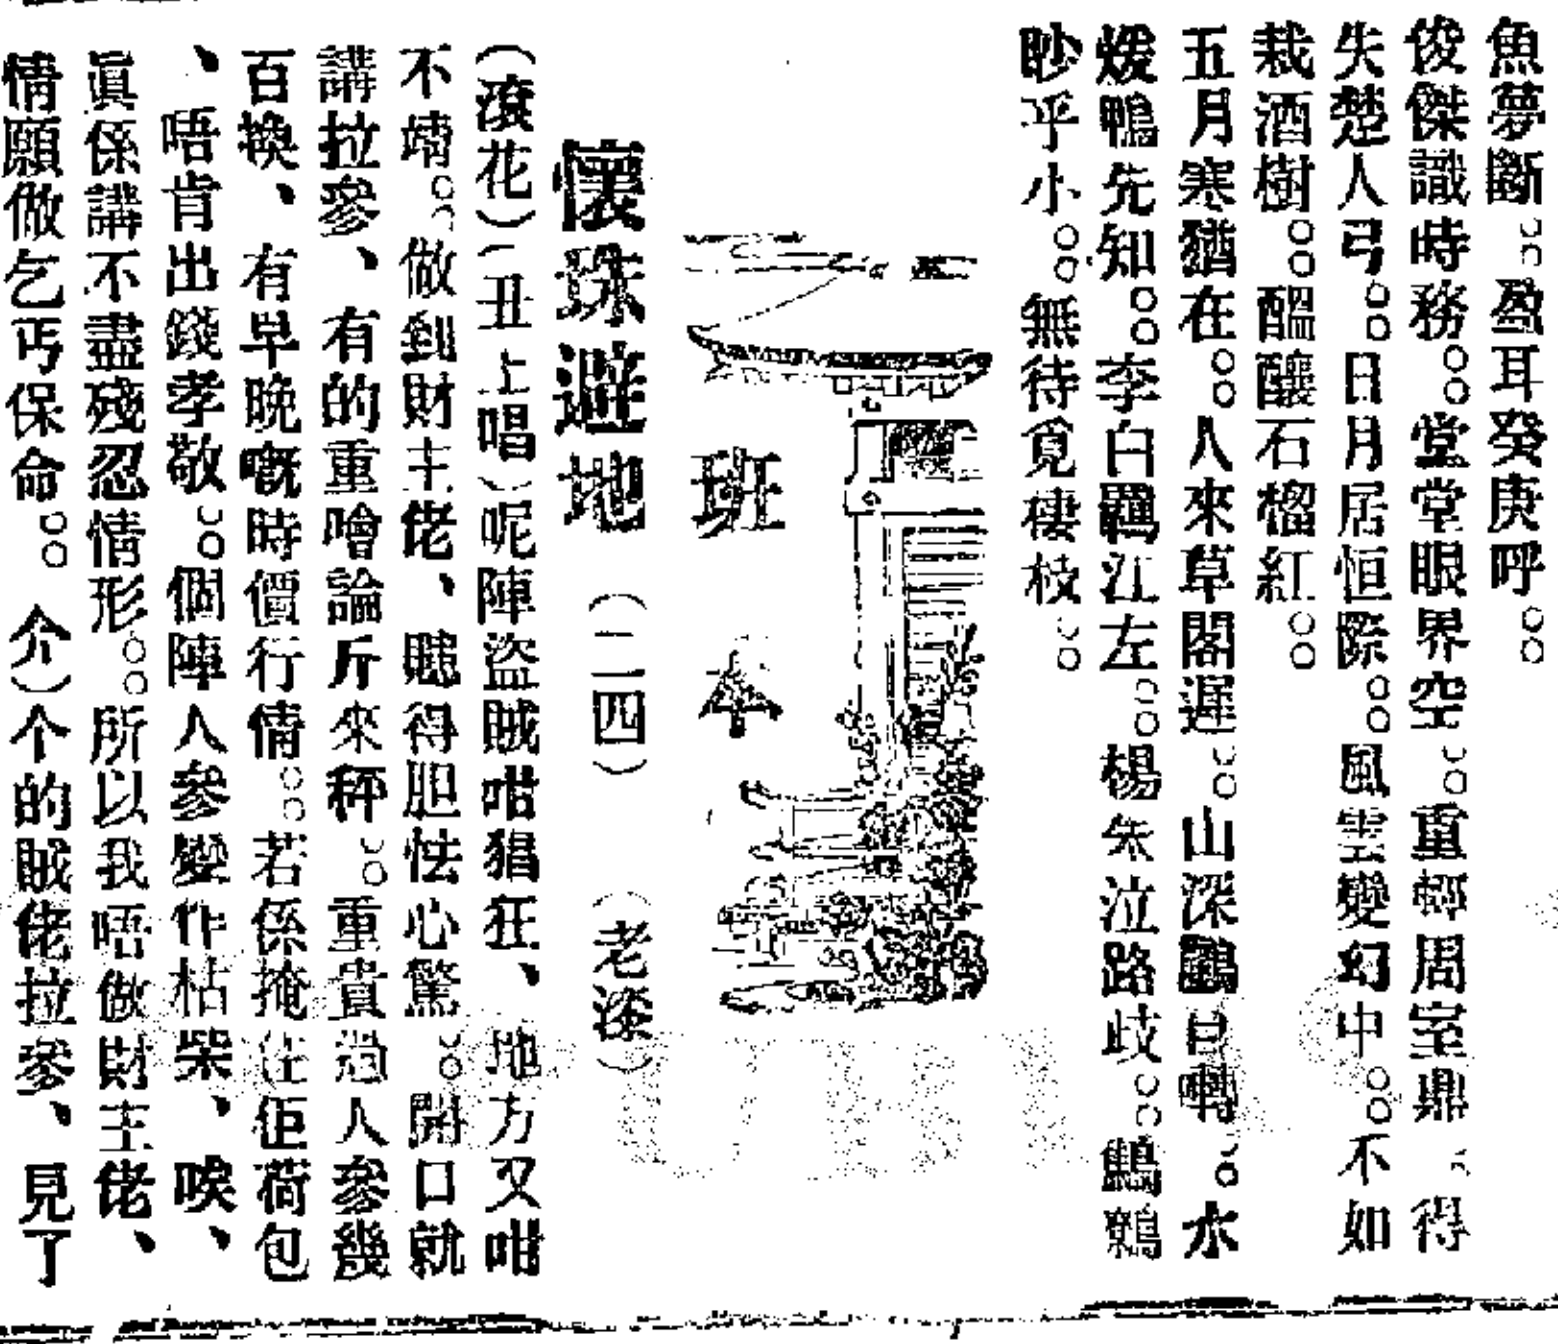 魚夢斷。。盈耳癸庚呼。。
俊傑識時務。。堂堂眼界空。。重郵周室鼎、得
失楚人弓。。日月居恒際。。風雲變幻中。。不如
栽酒樹。。醞釀石榴紅。。
五月寒猶在。。人來草閣遲。。山深鸝自囀。。水
煖鴨先知。。李白羈江左。。楊朱泣路歧。。鷦鷯
眇乎小。。無待覓棲枝。。
班本
懷珠避地 (二四) (老漆)
(滾花)(丑上唱)呢陣盜賊咁猖狂、地方又咁
不靖。。做到財主佬、聽得胆怯心驚。。開口就
講拉參、有的重噲論斤來秤。。重貴過人參幾
百換、有早晚嘅時價行情。。若係掩住佢荷包
、唔肯出錢孝敬。。個陣人參變作枯柴、唉、
眞係講不盡殘忍情形。。所以我唔做財主佬、
情願做乞丐保命。。介)个的賊佬拉參、見了